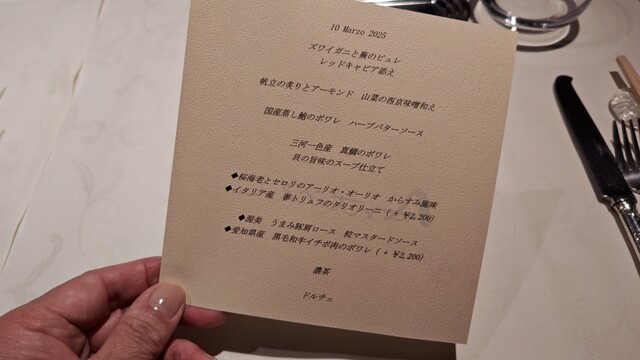 10 Marzo 2025
ズワイガニと蕪のピュレ
レッドキャビア添え
帆立の炙りとアーモンド 山菜の西京味噌和え
国産蒸し鮑のポワレ ハーブバターソース
三河一色産 真鯛のポワレ
貝の旨味のスープ仕立て
◆桜海老とセロリのアーリオ・オーリオ からすみ風味
◆イタリア産 春トリュフのタリオリーニ (+ ¥2,200)
◆渥美 うまみ豚肩ロース 粒マスタードソース
◆愛知県産 黒毛和牛イチボ肉のポワレ (+ ¥2,200)
濃茶
ドルチェ